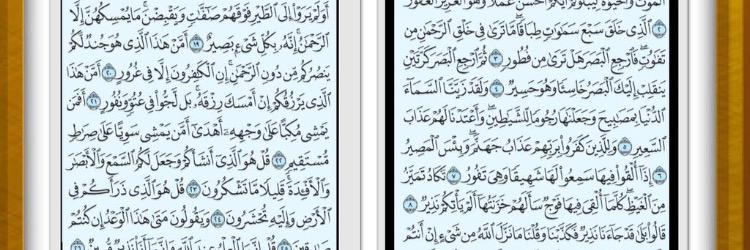 ٱلْمَوْتَ وَٱلْحَيَوٰةَ لِيَبْلُوَكُمْ أَيُّكُمْ أَحْسَنُ عَمَلًا وَهُوَ ٱلْعَزِيزُ ٱلْغَفُورُ
٢ ٱلَّذِى خَلَقَ سَبْعَ سَمَٰوَٰتٍ طِبَاقًا مَّا تَرَىٰ فِى خَلْقِ ٱلرَّحْمَٰنِ مِن
تَفَٰوُتٍ فَٱرْجِعِ ٱلْبَصَرَ هَلْ تَرَىٰ مِن فُطُورٍ ٣ ثُمَّ ٱرْجِعِ ٱلْبَصَرَ كَرَّتَيْنِ
يَنقَلِبْ إِلَيْكَ ٱلْبَصَرُ خَاسِئًا وَهُوَ حَسِيرٌ ٤ وَلَقَدْ زَيَّنَّا ٱلسَّمَآءَ
ٱلدُّنْيَا بِمَصَٰبِيحَ وَجَعَلْنَٰهَا رُجُومًا لِّلشَّيَٰطِينِ وَأَعْتَدْنَا لَهُمْ عَذَابَ
ٱلسَّعِيرِ ٥ وَلِلَّذِينَ كَفَرُوا۟ بِرَبِّهِمْ عَذَابُ جَهَنَّمَ وَبِئْسَ ٱلْمَصِيرُ
٦ إِذَآ أُلْقُوا۟ فِيهَا سَمِعُوا۟ لَهَا شَهِيقًا وَهِىَ تَفُورُ ٧ تَكَادُ تَمَيَّزُ
مِنَ ٱلْغَيْظِ كُلَّمَآ أُلْقِىَ فِيهَا فَوْجٌ سَأَلَهُمْ خَزَنَتُهَآ أَلَمْ يَأْتِكُمْ نَذِيرٌ ٨
قَالُوا۟ بَلَىٰ قَدْ جَآءَنَا نَذِيرٌ فَكَذَّبْنَا وَقُلْنَا مَا نَزَّلَ ٱللَّهُ مِن شَىْءٍ إِنْ أَنتُمْ
أَوَلَمْ يَرَوْا۟ إِلَى ٱلطَّيْرِ فَوْقَهُمْ صَٰٓفَّٰتٍ وَيَقْبِضْنَ مَا يُمْسِكُهُنَّ إِلَّا
ٱلرَّحْمَٰنُ إِنَّهُۥ بِكُلِّ شَىْءٍۭ بَصِيرٌ ١٩ أَمَّنْ هَٰذَا ٱلَّذِى هُوَ جُندٌ لَّكُمْ
يَنصُرُكُم مِّن دُونِ ٱلرَّحْمَٰنِ إِنِ ٱلْكَٰفِرُونَ إِلَّا فِى غُرُورٍ ٢٠ أَمَّنْ هَٰذَا
ٱلَّذِى يَرْزُقُكُمْ إِنْ أَمْسَكَ رِزْقَهُۥ بَل لَّجُّوا۟ فِى عُتُوٍّ وَنُفُورٍ ٢١ أَفَمَن
يَمْشِى مُكِبًّا عَلَىٰ وَجْهِهِۦٓ أَهْدَىٰٓ أَمَّن يَمْشِى سَوِيًّا عَلَىٰ صِرَٰطٍ
مُّسْتَقِيمٍ ٢٢ قُلْ هُوَ ٱلَّذِىٓ أَنشَأَكُمْ وَجَعَلَ لَكُمُ ٱلسَّمْعَ وَٱلْأَبْصَٰرَ
وَٱلْأَفْـِٔدَةَ قَلِيلًا مَّا تَشْكُرُونَ ٢٣ قُلْ هُوَ ٱلَّذِى ذَرَأَكُمْ فِى
ٱلْأَرْضِ وَإِلَيْهِ تُحْشَرُونَ ٢٤ وَيَقُولُونَ مَتَىٰ هَٰذَا ٱلْوَعْدُ إِن كُنتُمْ
صَٰدِقِينَ ٢٥ قُلْ إِنَّمَا ٱلْعِلْمُ عِندَ ٱللَّهِ وَإِنَّمَآ أَنَا۠ نَذِيرٌ مُّبِينٌ ٢٦